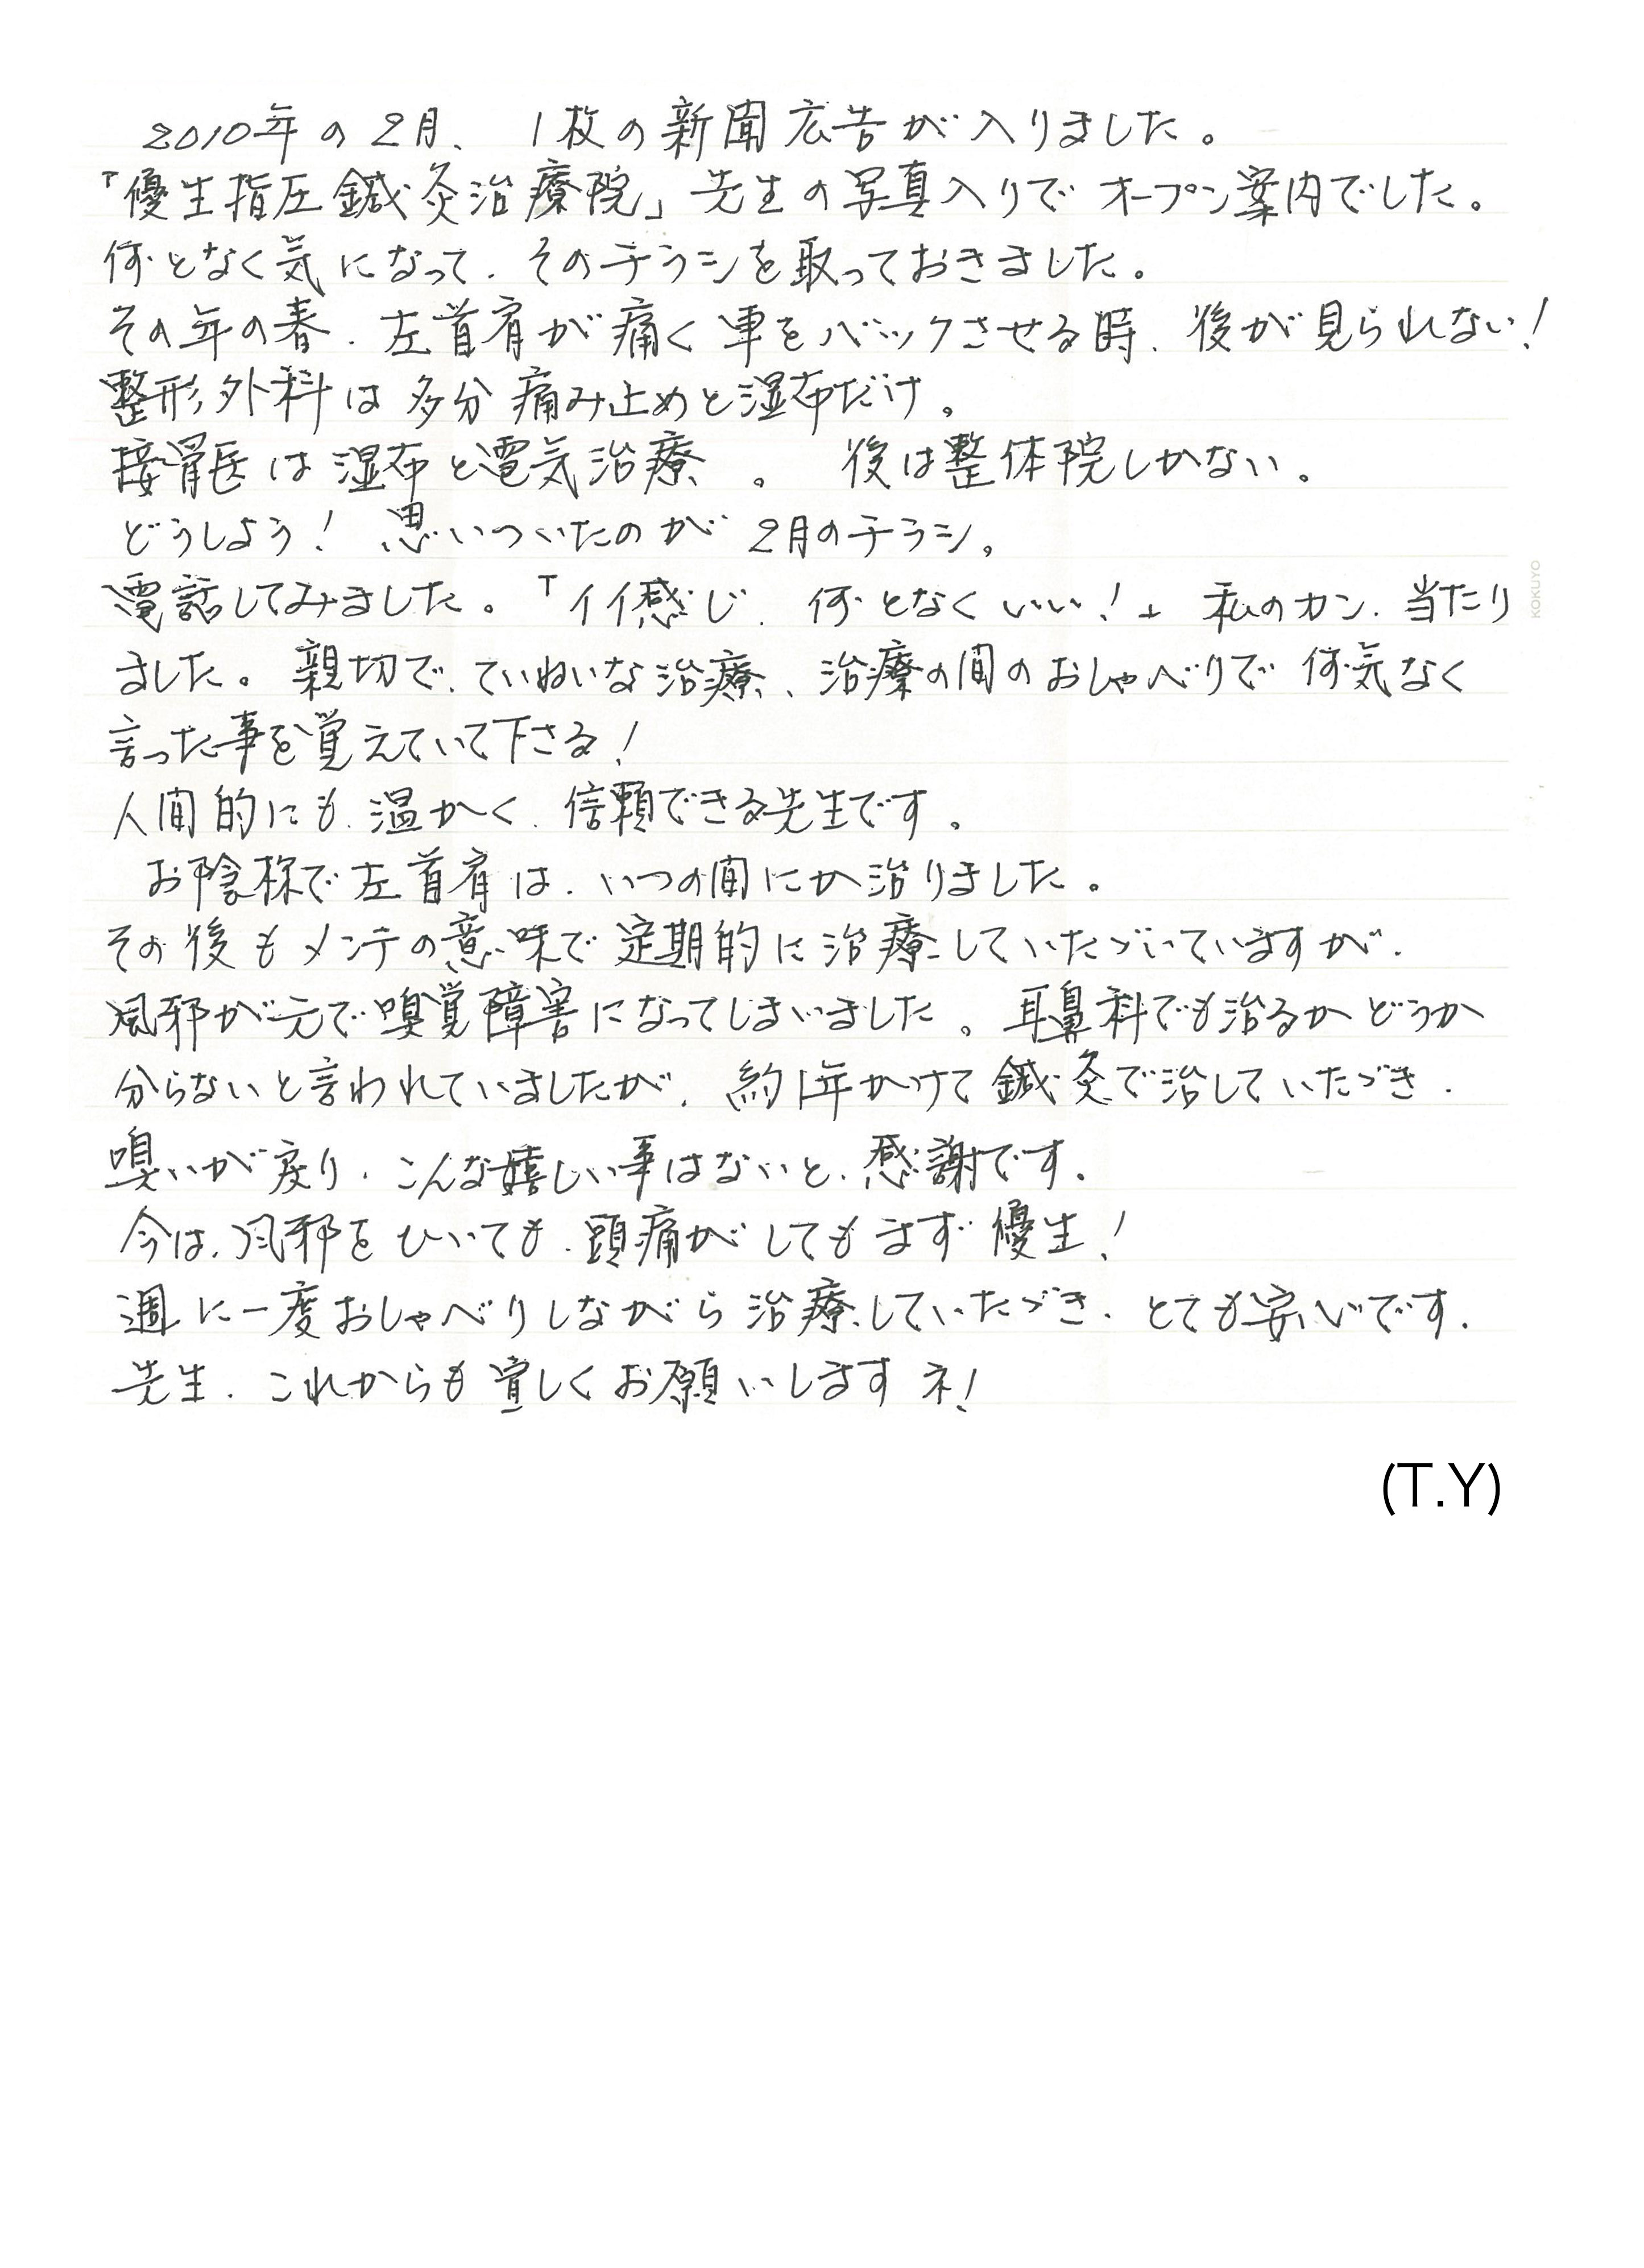 2010年の2月、1枚の新聞広告が入りました。
「優生指圧鍼灸治療院」先生の写真入りでオープン案内でした。
何となく気になって、そのチラシを取っておきました。
その年の春、左首肩が痛く車をバックさせる時、後が見られない!
整形外科は多分痛み止めと湿布だけ。
接骨医は湿布と電気治療。後は整体院しかない。
どうしよう!思いついたのが2月のチラシ。
電話してみました。「イイ感じ、何となくいい!」私のカン、当たり
ました。親切で、ていねいな治療、治療の間のおしゃべりで何気なく
言った事を覚えていて下さる!
人間的にも、温かく、信頼できる先生です。
お陰様で左首肩は、いつの間にか治りました。
その後もメンテの意味で定期的に治療していたづいていますが、
風邪が元で嗅覚障害になってしまいました。耳鼻科でも治るかどうか
分らないと言われていましたが、約1年かけて鍼灸で治していたづき、
嗅いが戻り、こんな嬉しい事はないと、感謝です。
今は、風邪をひいても、頭痛がしてもまず優生!
週に一度おしゃべりしながら治療していたづき、とても安心です。
先生、これからも宜しくお願いしますネ!
(T.Y)
KOKUYO